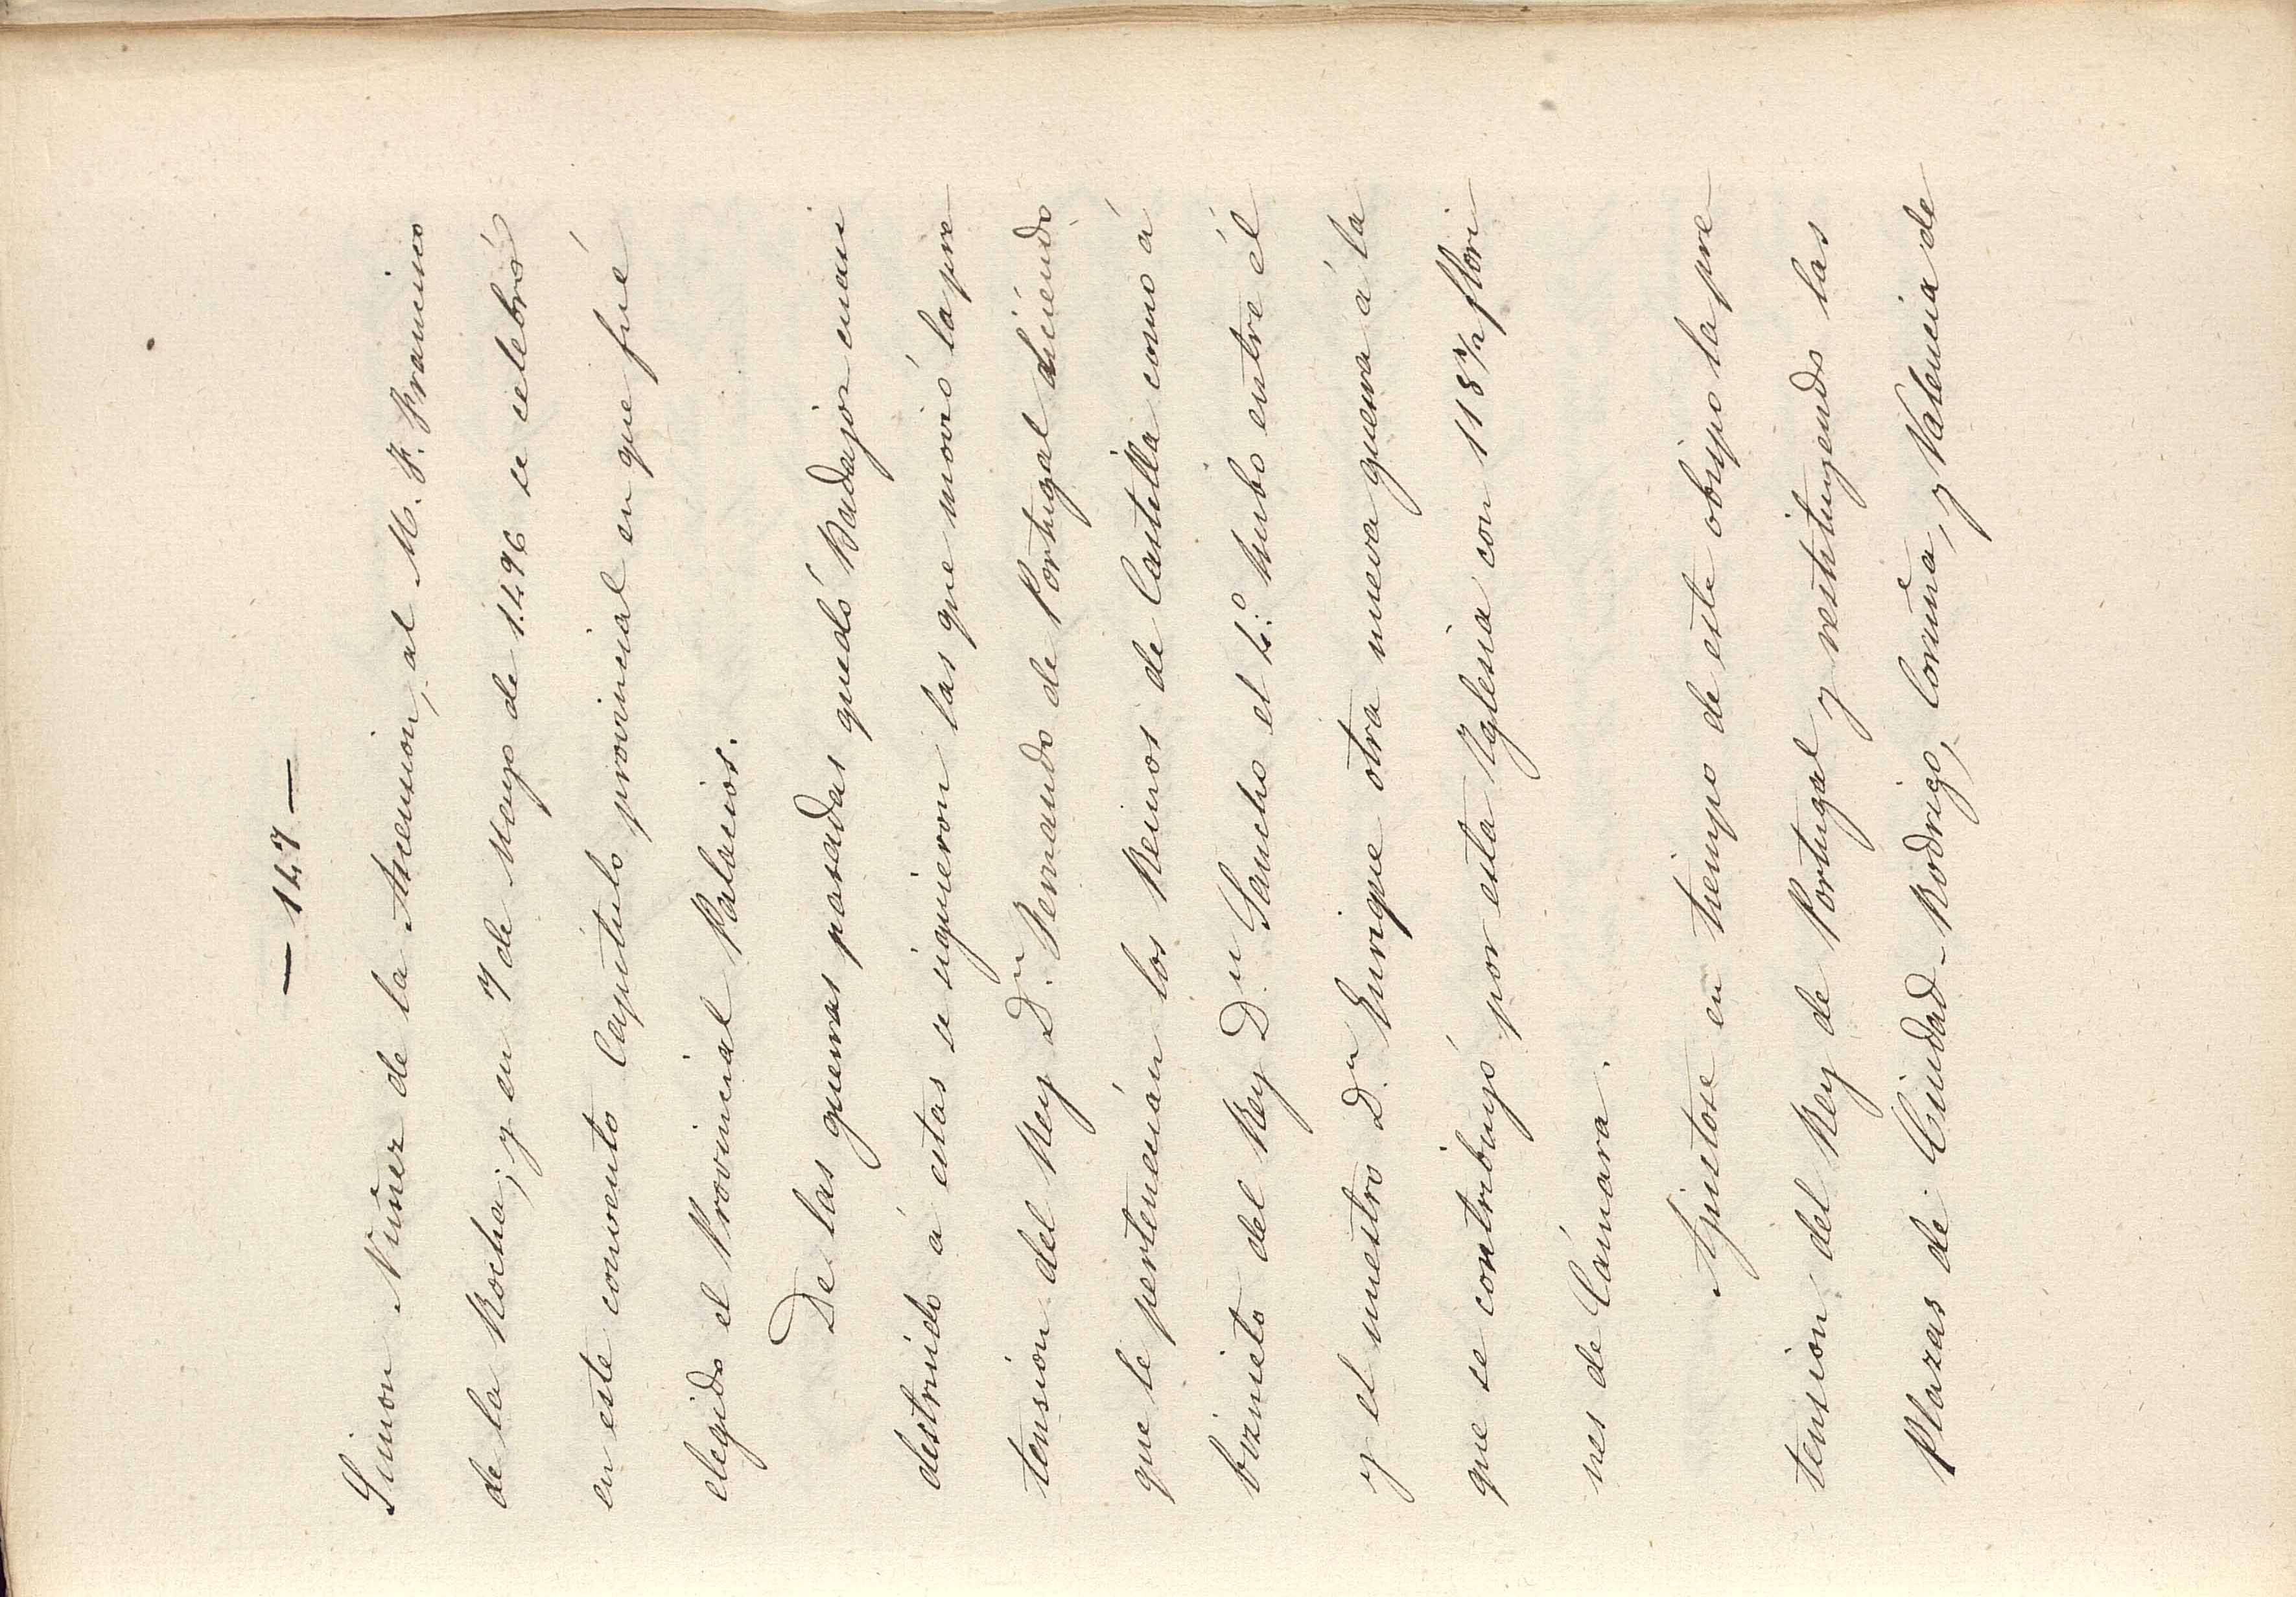 — 147 —
Simon Nuñez de la Ascension, al M. F. Francisco
de la Rocha; y en 7 de Mayo de 1496 se celebró
en este convento Capítulo provincial en que fué
elegido el Provincial Palacios.
De las guerras pasadas quedó Badajoz cuasi
destruido á estas se siguieron las que movió la pre
tension del Rey D.n Fernando de Portugal diciendo
que le pertenecían los Reinos de Castilla como á
biznieto del Rey D.n Sancho el 4.º hubo entre él
y el nuestro D.n Enrique otra nueva guerra á la
que se contribuyó por esta Yglesia con 118 1/2 flori
nes de Cámara.
Ajustose en tiempo de este obispo la pre
tension del Rey de Portugal y restituyendo las
Plazas de Ciudad-Rodrigo, Coruña, y Valencia de